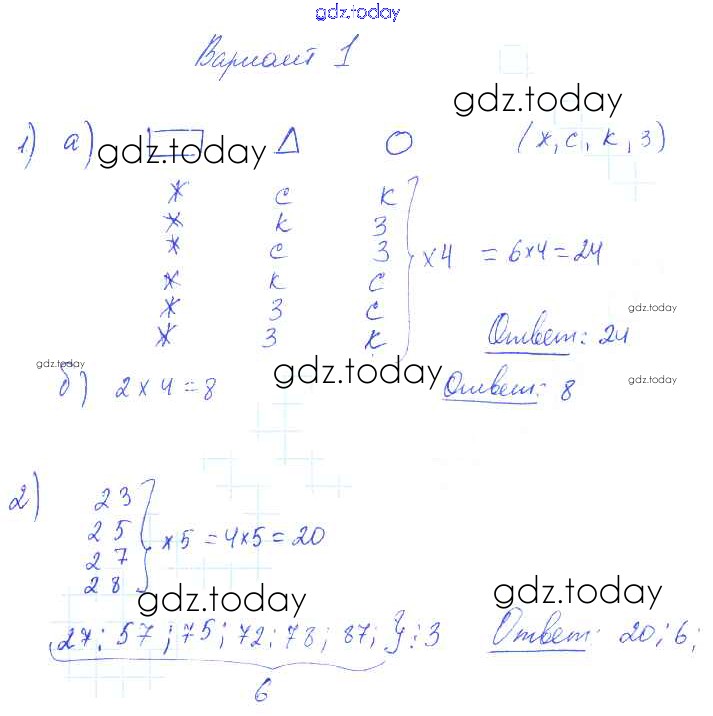 gdz.today
Вариант 1
gdz.today
1) а) ▭ Δ О (ж, с, к, з)
gdz.today
ж с к
ж к з
ж с з
ж к с
ж з с
ж з к
} x4 = 6x4 = 24
gdz.today
Ответ: 24
gdz.today
б) 2 x 4 = 8
gdz.today
Ответ: 8
gdz.today
2) 23
25
27
28
} x5 = 4x5 = 20
gdz.today
gdz.today
27; 57; 75; 72; 78; 87; } : 3
6
Ответ: 20; 6;